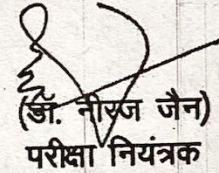 (डॉ. नीरज जैन)
परीक्षा नियंत्रक